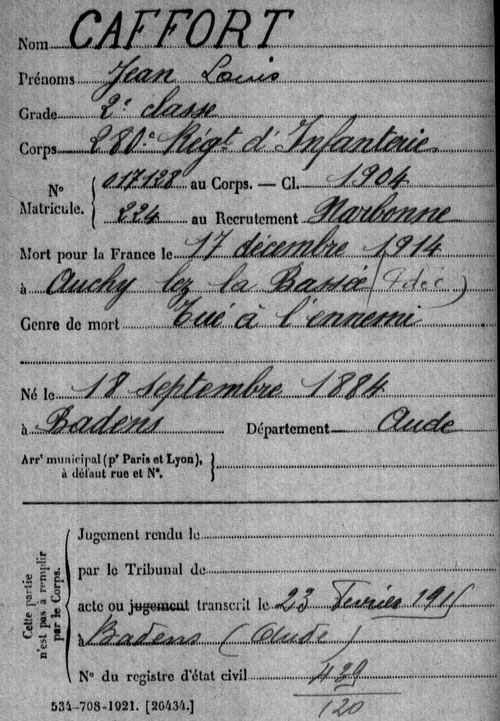 Nom CAFFORT
Prénoms Jean Louis
Grade 2e classe
Corps 280e Régt d'Infanterie
N° Matricule. { 017128 au Corps. — Cl. 1904
224 au Recrutement Narbonne
Mort pour la France le 17 décembre 1914
à Auchy lez la Bassée (4 déc)
Genre de mort Tué à l'ennemi
Né le 18 septembre 1884
à Badens Département Aude
Arrt municipal (pr Paris et Lyon),
à défaut rue et N°.
Cette partie
n'est pas à remplir
par le Corps.
Jugement rendu le
par le Tribunal de
acte ou jugement transcrit le 23 Février 1915
à Badens (Aude)
N° du registre d'état civil 439
120
534-708-1921. [26434.]